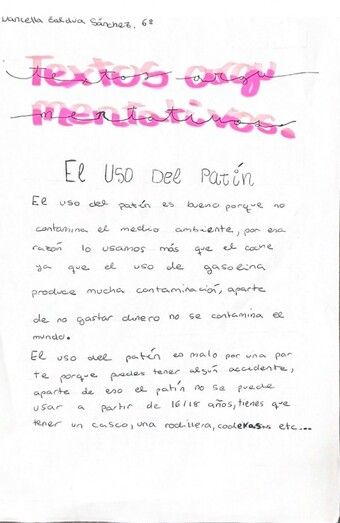 Marcella Saldva Sánchez. 6B
Textos argu
mentativos.
El uso Del Patín
El uso del patín es bueno porque no
contamina el medio ambiente, por esa
razón lo usamos más que el coche
ya que el uso de gasolina
produce mucha contaminación, aparte
de no gastar dinero no se contamina el
mundo.
El uso del patín es malo por una par
te porque puedes tener algún accidente,
aparte de eso el patín no se puede
usar a partir de 16/18 años, tienes que
tener un casco, una rodillera, coderas etc...